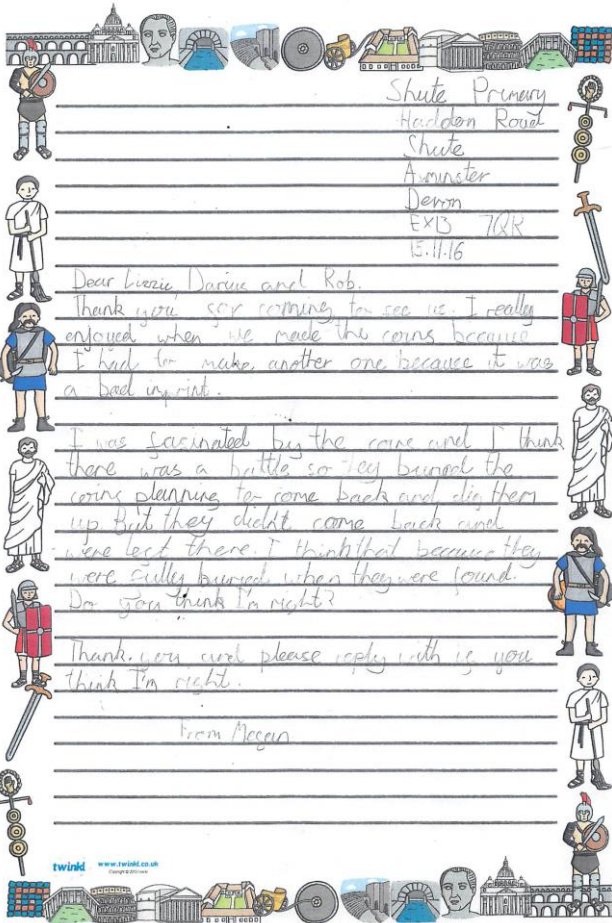 Shute Primary
Haddon Road
Shute
Axminster
Devon
EX13 7QR
15.11.16
Dear Lizzie, Darius and Rob.
Thank you for coming to see us. I really
enjoyed when we made the coins because
I had to make another one because it was
a bad imprint.
I was fascinated by the coins and I think
there was a battle so tey buried the
coins planning to come back and dig them
up. But they didn't come back and
were left there. I think that because they
were fully buried when they were found.
Do you think I'm right?
Thank you and please reply with if you
think I'm right.
From Megan
twinkl www.twinkl.co.uk